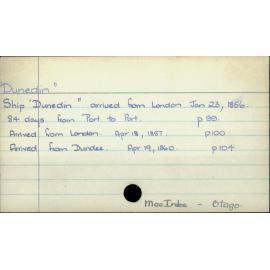 "Dunedin"
Ship "Dunedin" arrived from London Jan 23, 1856.
84 days from Port to Port. p 99.
Arrived from London. Apr 18, 1857. p100
Arrived from Dundee. Apr 19, 1860. p104
- Otago.